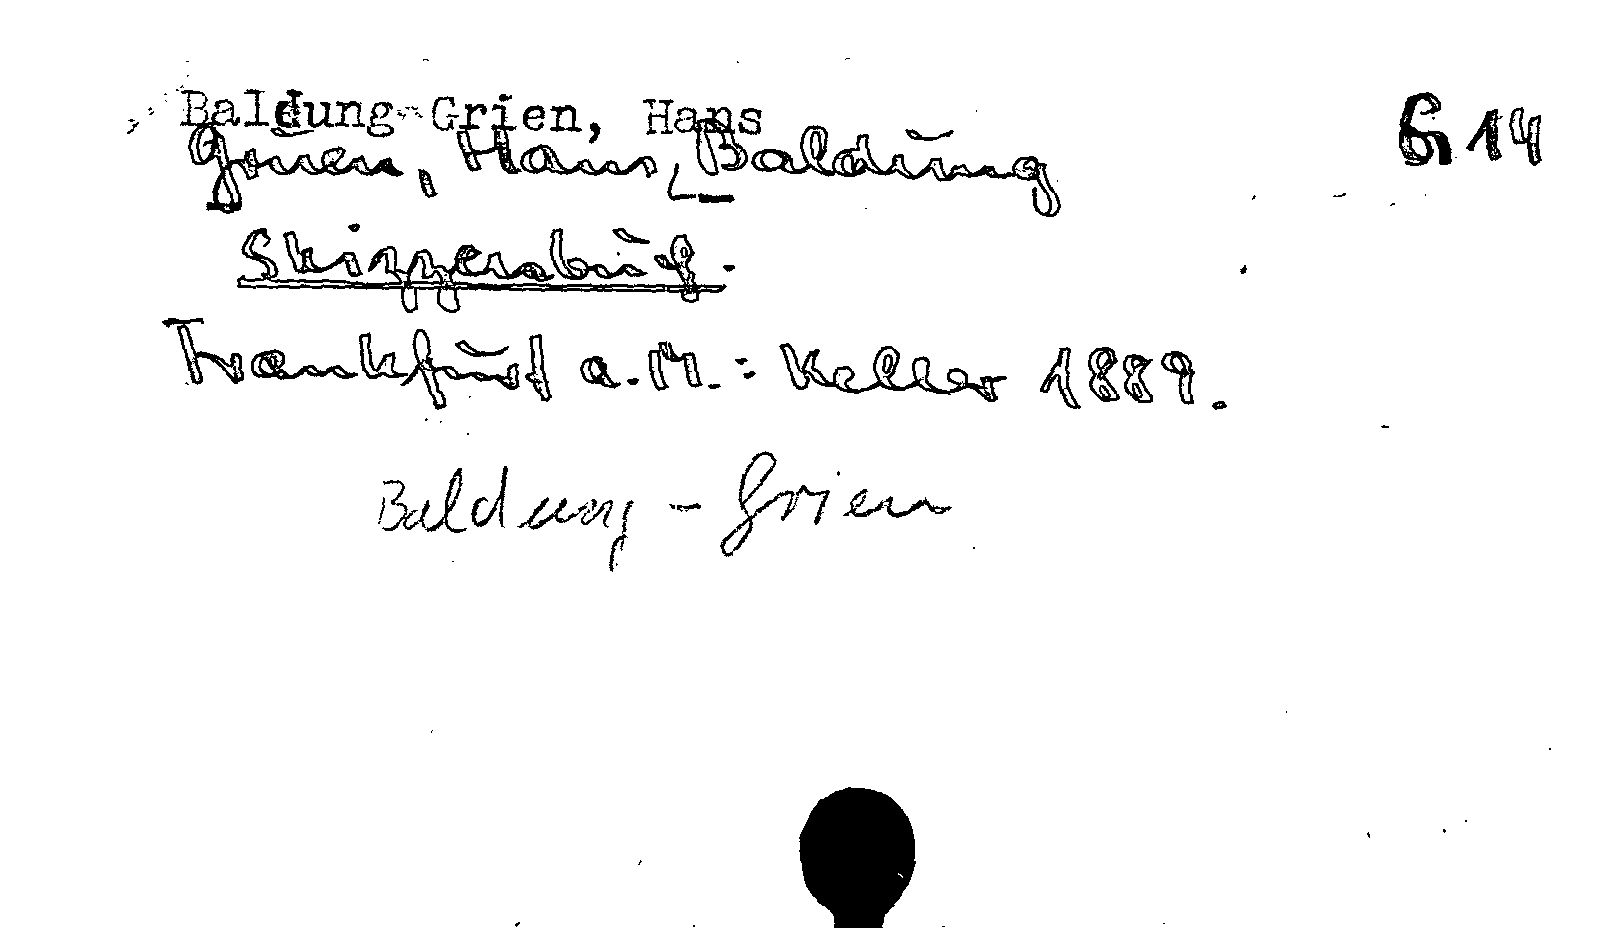 Baldung-Grien, Hans
Gr 14
Grien, Hans Baldung
Skizzenbuch.
Frankfurt a. M. : Keller 1889.
Baldung - Grien